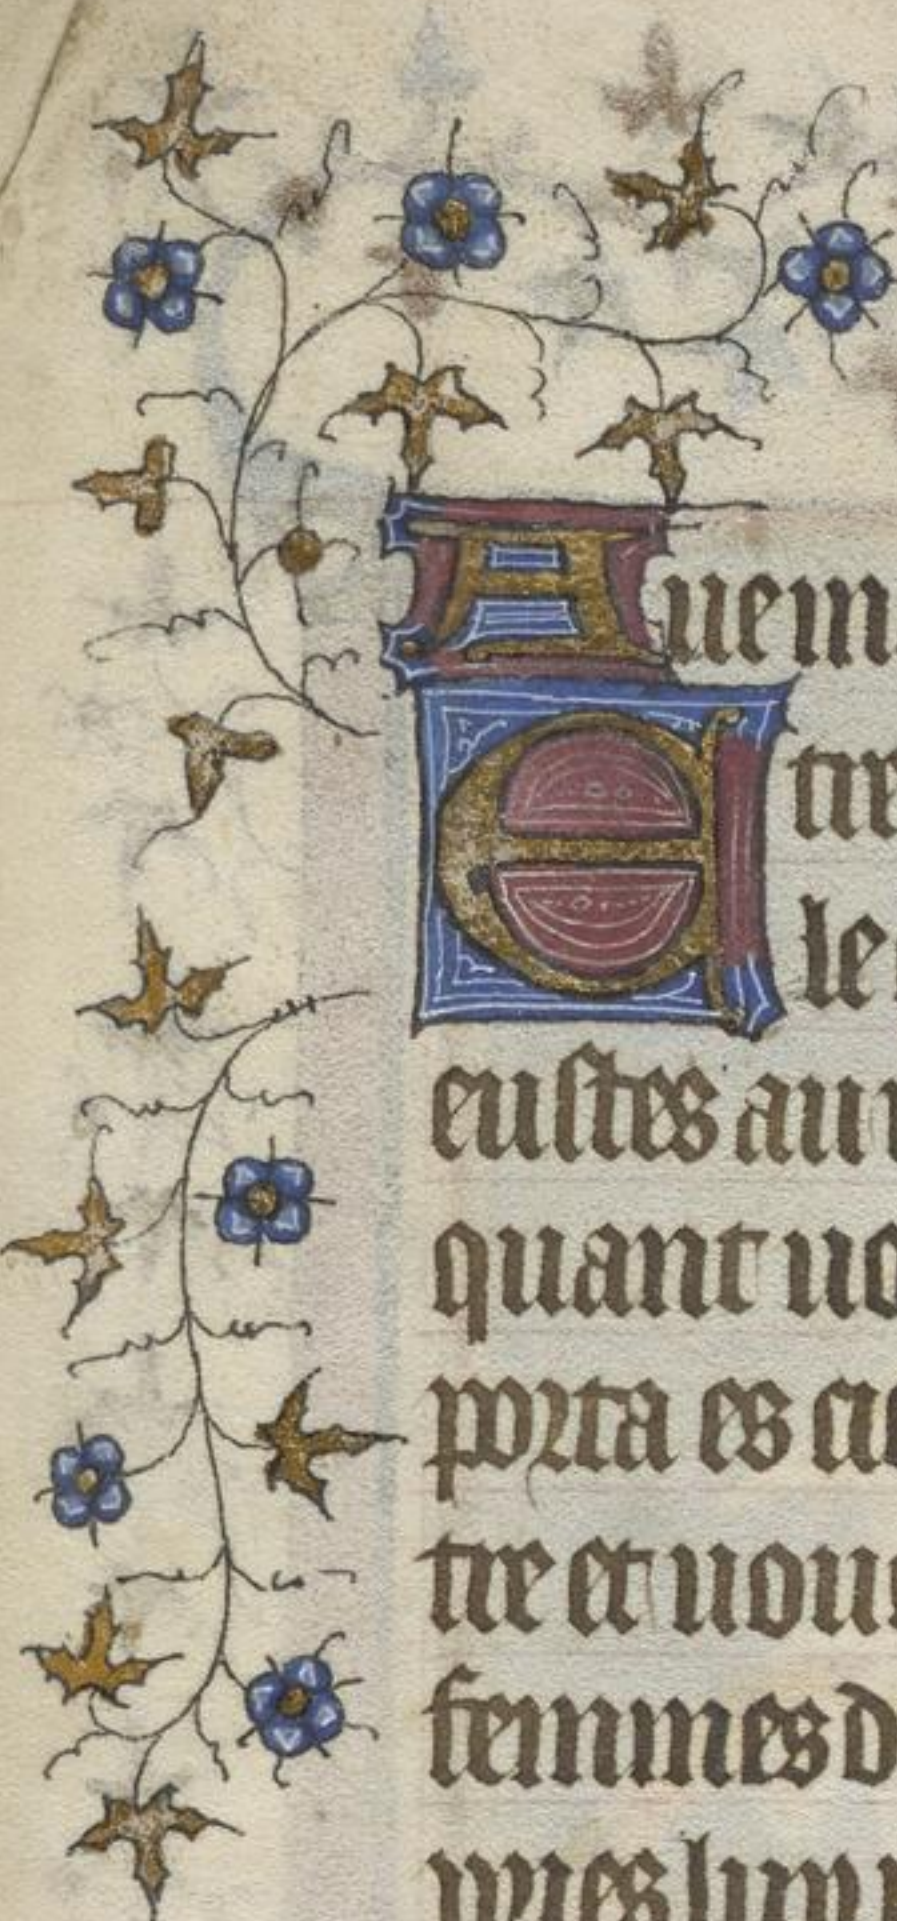 Auem
E tre
le
eustes au
quant uo
porta es cie
tre et uou
femmes d